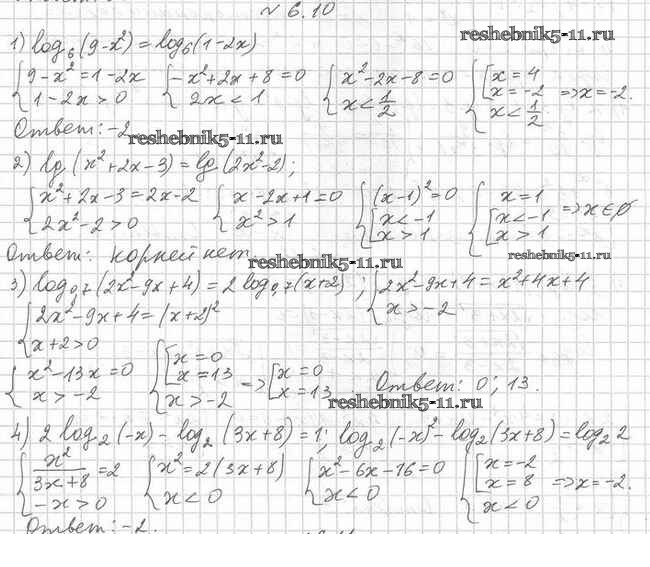 № 6.10
reshebnik5-11.ru
1) log₆(9-x²)=log₆(1-2x)
{9-x²=1-2x {-x²+2x+8=0 {x²-2x-8=0 {[x=4
{1-2x>0 {2x<1 {x<1/2 {[x=-2 =>x=-2.
{x<1/2
Ответ: -2
reshebnik5-11.ru
2) lg(x²+2x-3)=lg(2x²-2);
{x²+2x-3=2x-2 {x-2x+1=0 {(x-1)²=0 {x=1
{2x²-2>0 {x²>1 {[x<-1 {[x<-1 =>x∈∅
[x>1 [x>1
Ответ: корней нет
reshebnik5-11.ru
reshebnik5-11.ru
3) log₀,₇(2x²-9x+4)=2log₀,₇(x+2); {2x²-9x+4=x²+4x+4
{2x²-9x+4=(x+2)² {x>-2
{x+2>0
{x²-13x=0 {[x=0 =>[x=0
{x>-2 {[x=13 [x=13 Ответ: 0; 13.
{x>-2
reshebnik5-11.ru
4) 2log₂(-x)-log₂(3x+8)=1; log₂(-x)²-log₂(3x+8)=log₂2
{x²/(3x+8)=2 {x²=2(3x+8) {x²-6x-16=0 {[x=-2
{-x>0 {x<0 {x<0 {[x=8 =>x=-2.
{x<0
Ответ: -2.